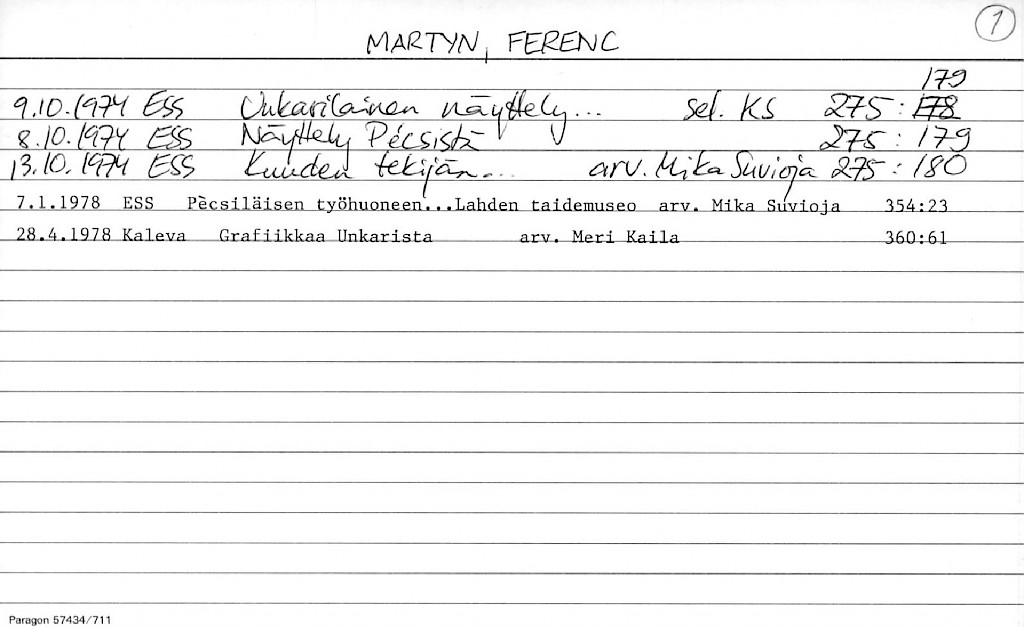 1
MARTYN, FERENC
179
9.10.1974 ESS Unkarilainen näyttely... sel. KS 275: 178
8.10.1974 ESS Näyttely Pécsistä 275: 179
13.10.1974 ESS Kuuden tekijän... arv. Mika Suvioja 275: 180
7.1.1978 ESS Pècsiläisen työhuoneen...Lahden taidemuseo arv. Mika Suvioja 354:23
28.4.1978 Kaleva Grafiikkaa Unkarista arv. Meri Kaila 360:61
Paragon 57434/711